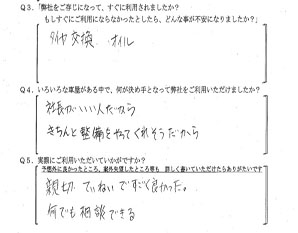 Q3.「弊社をご存じになって、すぐに利用されましたか?
もしすぐにご利用にならなかったとしたら、どんな事が不安になりましたか?」
タイヤ交換 オイル
Q4.いろいろな車屋がある中で、何が決め手となって弊社をご利用いただけましたか?
社長がいい人だから
きちんと整備をやってくれそうだから
Q5.実際にご利用いただいていかがですか?
予想外に良かったところ、案外失望したところ等も 詳しく書いていただけたらありがたいです
親切 ていねいですごく良かった。
何でも相談できる